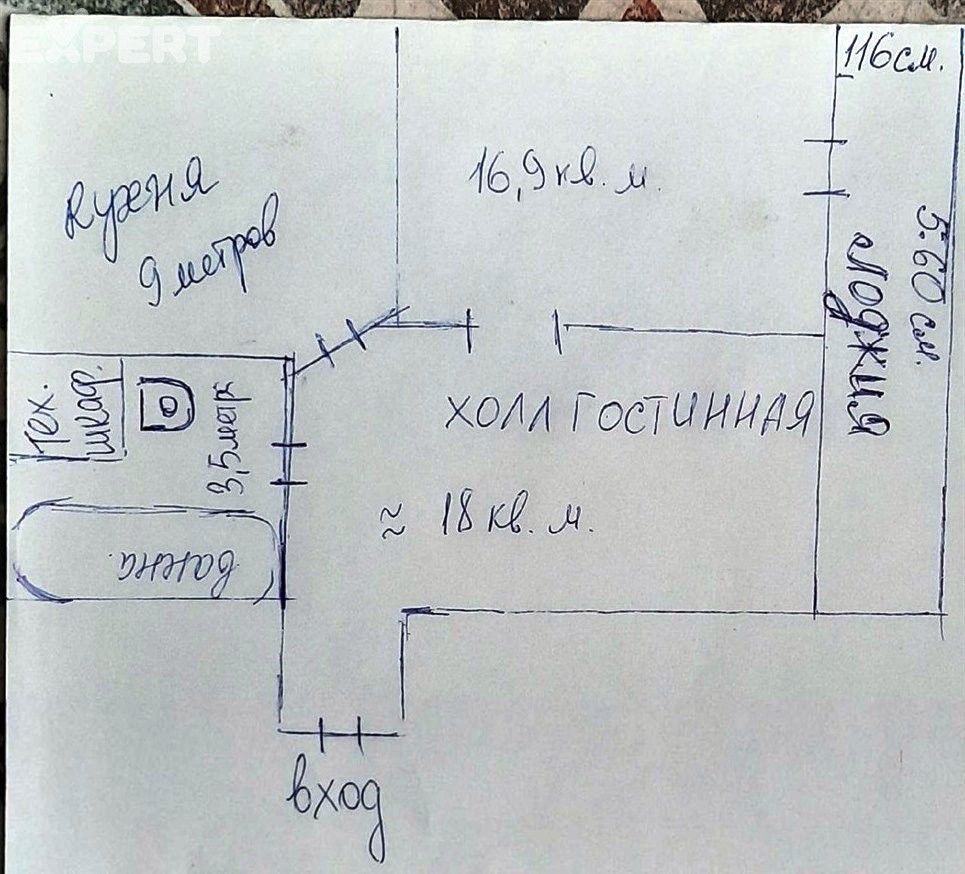 EXPERT
116см.
Кухня
9 метров
16,9 кв. м.
5.60 см.
Лоджия
Тех.
шкаф.
3,5 метр
ХОЛЛ ГОСТИННАЯ
≈ 18 кв. м.
ванна.
вход